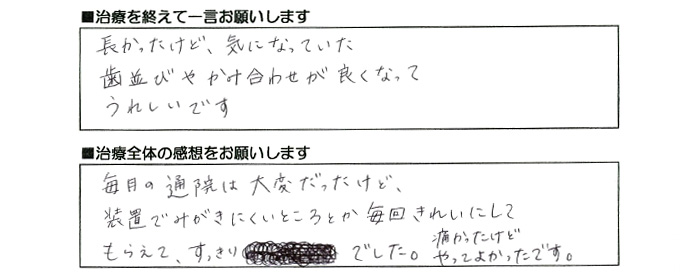 ■治療を終えて一言お願いします
長かったけど、気になっていた
歯並びやかみ合わせが良くなって
うれしいです
■治療全体の感想をお願いします
毎月の通院は大変だったけど、
装置でみがきにくいところとか毎回きれいにして
もらえて、すっきり でした。痛かったけど
やってよかったです。